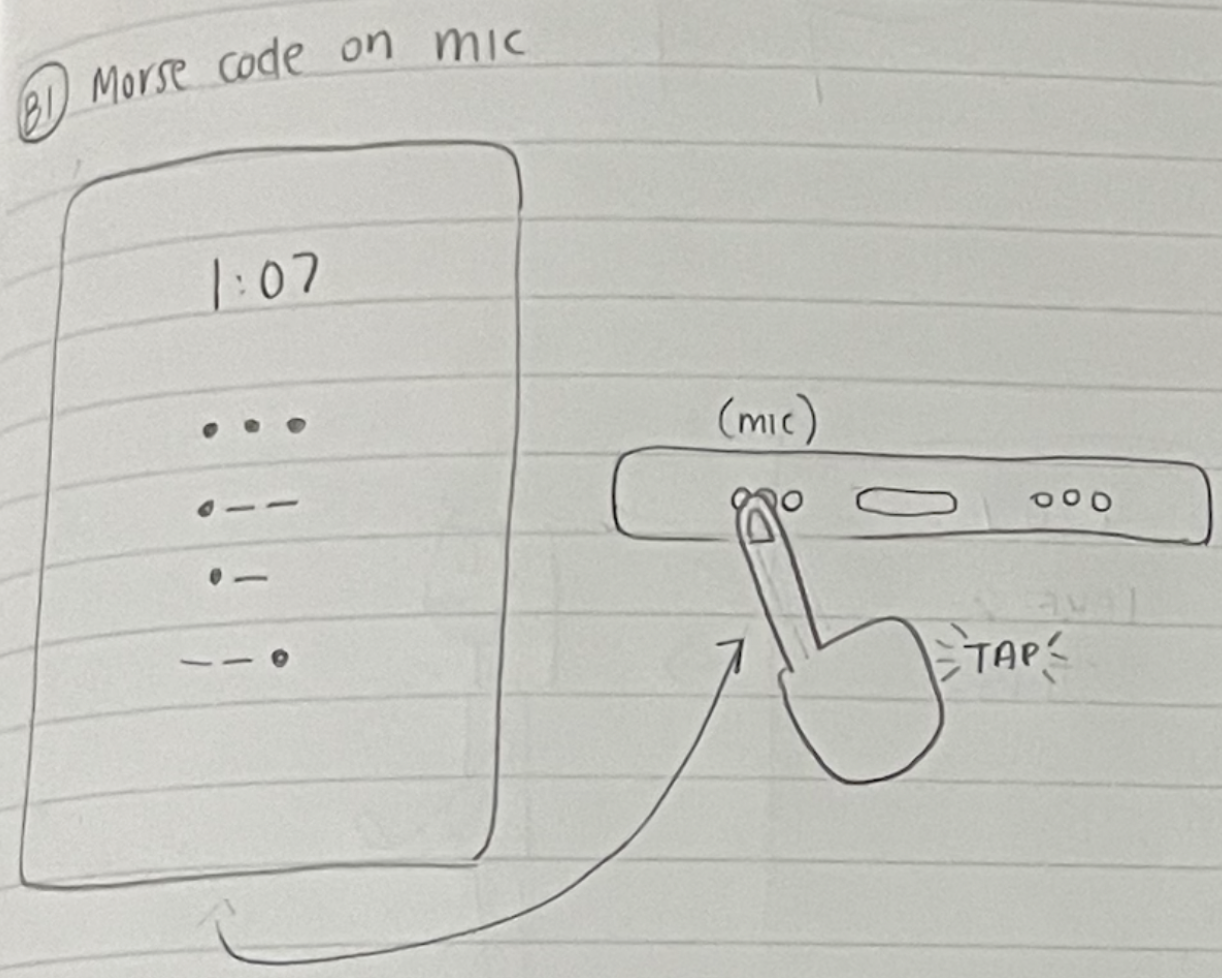 B1 Morse code on mic
1:07
• • •
• – –
• –
– – •
(mic)
TAP